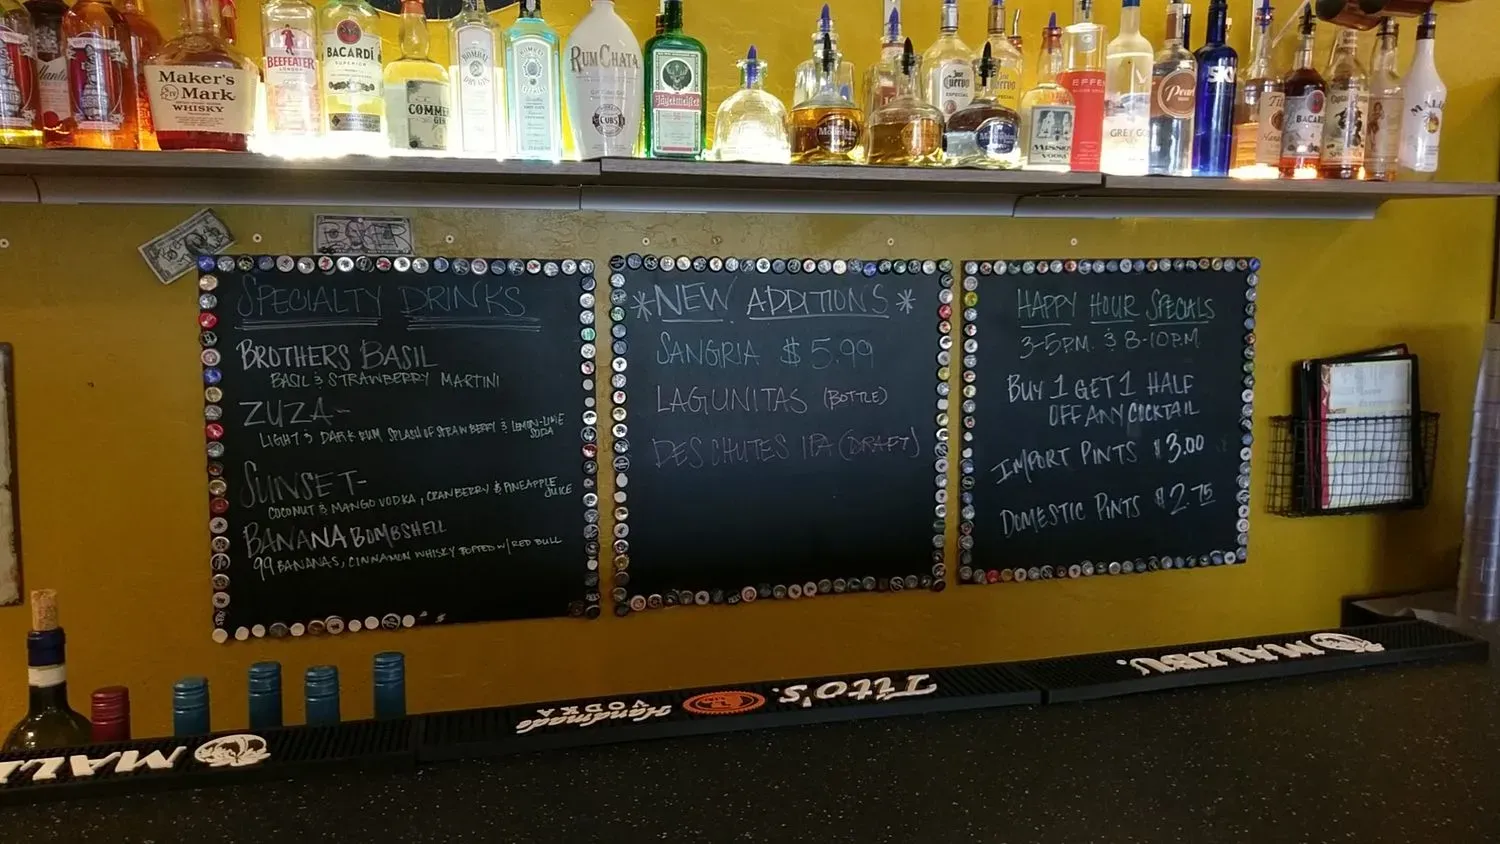 Maker's Mark
WHISKY
BEEFEATER
LONDON
BACARDÍ
SUPERIOR
BOMBAY
RUMCHATA
CUBS
Jägermeister
Jose Cuervo
ESPECIAL
EFFEN
GREY GO
Pearl
SKY
BACAR
SPECIALTY DRINKS
BROTHERS BASIL
BASIL & STRAWBERRY MARTINI
ZUZA-
LIGHT & DARK RUM SPLASH OF STRAWBERRY & LEMON-LIME
SODA
SUNSET-
COCONUT & MANGO VODKA, CRANBERRY & PINEAPPLE
JUICE
BANANA BOMBSHELL
99 BANANAS, CINNAMON WHISKY TOPPED W/ RED BULL
*NEW ADDITIONS*
SANGRIA $5.99
LAGUNITAS (BOTTLE)
DESCHUTES IPA (DRAFT)
HAPPY HOUR SPECIALS
3-5P.M. & 8-10P.M.
BUY 1 GET 1 HALF
OFF ANY COCKTAIL
IMPORT PINTS $3.00
DOMESTIC PINTS $2.75
MALIBU.
Tito's.
Handmade
VODKA
MALI